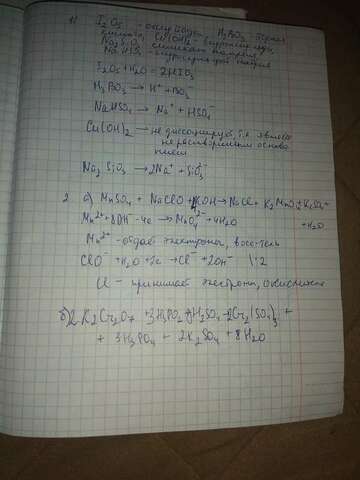 1) I2O5 - оксид йода, H3BO3 - борная
кислота, Cu(OH)2 - гидроксид меди,
Na2SiO3 - силикат натрия
NaHSO4 - гидросульфат натрия
I2O5 + H2O = 2HIO3
H3BO3 → H+ + BO3-
NaHSO4 → Na+ + HSO4-
Cu(OH)2 → не диссоциирует, т.к. является
нерастворимым основа
нием
Na2SiO3 → 2Na+ + SiO3 2-
2 а) MnSO4 + NaClO + KOH → NaCl + K2MnO4 + K2SO4
+ H2O
Mn2+ + 8OH- - 4e → MnO4 2- + 4H2O
Mn2+ - отдаёт электроны, восс-тель
ClO- + H2O + 2e → Cl- + 2OH- | 2
Cl - принимает электроны, окислитель
б) 2K2Cr2O7 + 3H3PO2 + 8H2SO4 → 2Cr2(SO4)3 +
+ 3H3PO4 + 2K2SO4 + 8H2O